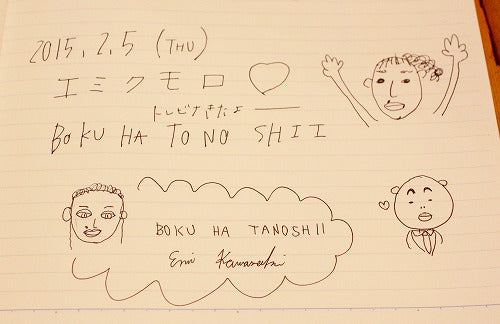 2015.2.5 (THU)
エミクモロ♡
トレビナきたよー
BOKU HA TONO SHII
BOKU HA TANOSHII
Emi Kawasaki